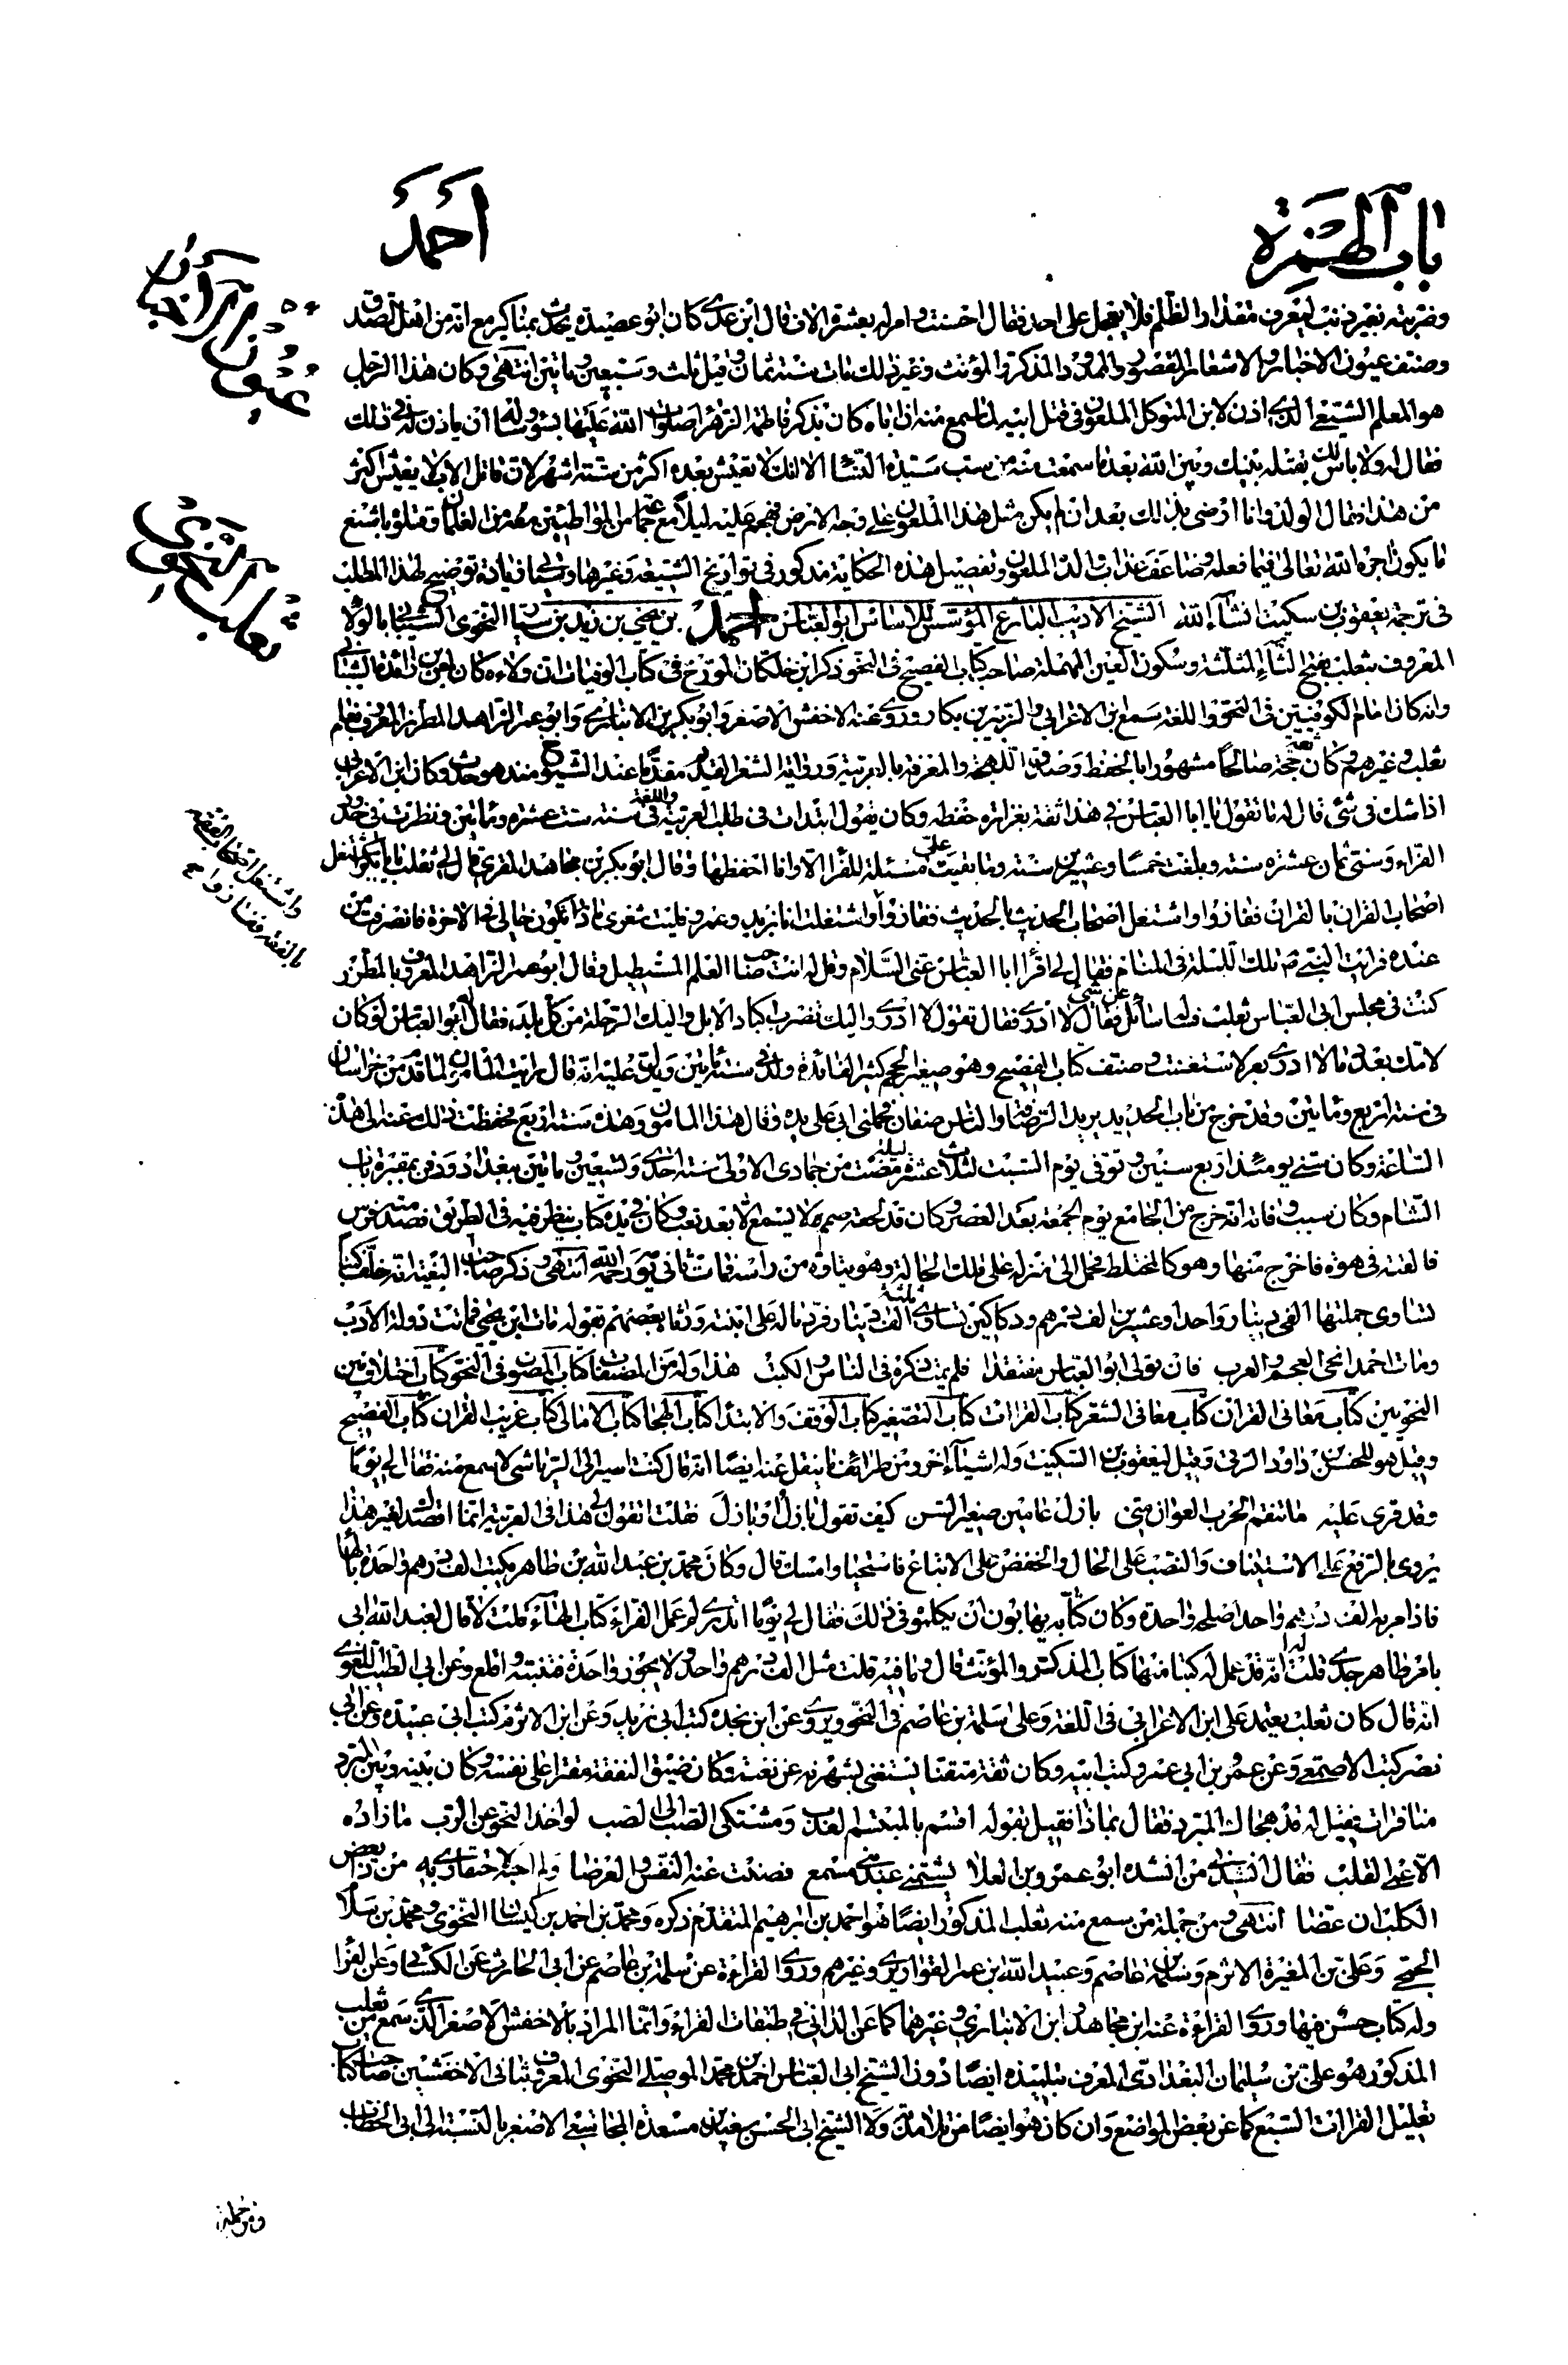 باب الهمزة
أحمد
وضربته بغير ذنب ليعرف مقدار الظلم فلا يعجل على احد فقال احسنت وامر له بعشرة الاف قال ابن عدي كان ابو عصيدة يحدث بمناكير مع انه من اهل الصدق
وصنف عيون الاخبار والاشعار والمقصور والممدود والمذكر والمؤنث وغير ذلك مات سنة ثمان وقيل ثلث وسبعين ومأتين انتهى وكان هذا الرجل
هو المعلم الشيعي الذي اذن لابن المتوكل الملعون في قتل ابيه لما سمع منه ان اباه كان يذكر فاطمة الزهراء صلوات الله عليها بسوء وساله ان ياذن له في ذلك
فقال له ولا باس لك بقتله بينك وبين الله بعد ما سمعت منه من سب سيدة النساء الا انك لا تعيش بعده اكثر من ستة اشهر لان قاتل الاب لا يعيش اكثر
من هذا فقال الولد وانا ارضى بذلك بعد ان لم يكن مثل هذا الملعون على وجه الارض فهجم عليه ليلا مع جماعة من المواطنين معه من الغلمان وقتلوه باشنع
ما يكون اجره الله تعالى فيما فعله وضاعف عذاب والده الملعون وتفصيل هذه الحكاية مذكور في تواريخ الشيعة وغيرها وسياتي زيادة توضيح لهذا المطلب
في ترجمة يعقوب بن سكيت انشاء الله الشيخ الاديب البارع المؤسس للاساس ابو العباس احمد بن يحيى بن زيد بن سيار النحوي الشيباني بالولاء
المعروف بثعلب بفتح الثاء المثلثة وسكون العين المهملة صاحب كتاب الفصيح في النحو ذكر ابن خلكان المورخ في كتاب الوفيات ان ولاءه كان لمعن بن زائدة الشيباني
وانه كان امام الكوفيين في النحو واللغة سمع ابن الاعرابي والزبير بن بكار وروى عنه الاخفش الاصغر وابو بكر بن الانباري وابو عمر الزاهد المطرز المعروف بغلام
ثعلب وغيرهم وكان حجة ثقة صالحا مشهورا بالحفظ وصدق اللهجة والمعرفة بالعربية ورواية الشعر القديم مقدما عند الشيوخ منذ هو حدث وكان ابن الاعرابي
اذا شك في شئ قال له ما تقول يا ابا العباس في هذا ثقة بغزارة حفظه وكان يقول ابتدات في طلب العربية واللغة في سنة ست عشرة ومأتين ونظرت في حدود
الفراء وسني ثمان عشرة سنة وبلغت خمسا وعشرين سنة وما بقيت على مسئلة للفراء الا وانا احفظها وقال ابو بكر بن مجاهد المقري قال لي ثعلب يا ابا بكر اشتغل
اصحاب القران بالقران ففازوا واشتغل اصحاب الحديث بالحديث ففازوا واشتغلت انا بزيد وعمرو فليت شعري ماذا يكون حالي في الاخرة فانصرفت من
عنده فرايت النبي ص تلك الليلة في المنام فقال لي اقرأ ابا العباس عني السلام وقل له انت صاحب العلم المستطيل وقال ابو عمر الزاهد المعروف بالمطرز
كنت في مجلس ابي العباس ثعلب فساله سائل عن شئ فقال لا ادري فقال تقول لا ادري واليك تضرب اكباد الابل واليك الرحلة من كل بلد، فقال له ابو العباس لو كان
لامك بعدد ما لا ادري بعر لاستغنت وصنف كتاب الفصيح وهو صغير الحجم كثير الفائدة ولد في سنة مأتين ويدل عليه انه قال رايت المامون لما قدم من خراسان
في سنة اربع ومأتين وقد خرج من باب الحديد يريد الرصافة والناس صفان فحملني ابي على يده وقال هذا المامون وهذه سنة اربع فحفظت ذلك عنه الى هذه
الساعة وكان سني يومئذ اربع سنين وتوفي يوم السبت لثلث عشرة ليلة مضت من جمادى الاولى سنة احدى وتسعين ومأتين ببغداد ودفن بمقبرة باب
الشام وكان سبب وفاته انه خرج من الجامع يوم الجمعة بعد العصر وكان قد لحقه صمم لا يسمع الا بعد تعب وكان في يده كتاب ينظر فيه في الطريق فصدمته فرس
فالقته في هوة فاخرج منها وهو كالمختلط فحمل الى منزله على تلك الحالة وهو يتاوه من راسه فمات ثاني يوم رحمه الله انتهى وذكر صاحب البغية انه خلف كتبا
تساوي جملتها الفي دينار واحدا وعشرين الف درهم ودكاكين تساوي ثلثة الاف دينار فرد ماله على ابنته ورثاه بعضهم بقوله مات ابن يحيى فماتت دولة الادب
ومات احمد انحى العجم والعرب فان تولى ابو العباس مفتقدا فلم يمت ذكره في الناس والكتب هذا وله من المصنفات كتاب المصون في النحو كتاب اختلاف بين
النحويين كتاب معاني القران كتاب معاني الشعر كتاب القراات كتاب التصغير كتاب الوقف والابتداء كتاب الهجاء كتاب الامالي كتاب غريب القران كتاب الفصيح
وقيل هو للحسن بن داود الرقي وقيل ليعقوب بن السكيت وله اشياء اخر ومن طرائف ما ينقل عنه ايضا انه قال كنت اسير الى الرياشي لاسمع منه فقال لي يوما
وقد قرى عليه ما تنقم الحرب العوان مني بازل عامين صغير السن كيف تقول بازل او بازل فقلت اتقول لي هذا في العربية انما اقصدك لغير هذا
يروى بالرفع على الاستيناف والنصب على الحال والخفض على الاتباع فاستحيا وامسك قال وكان محمد بن عبد الله بن طاهر يكتب الف درهم واحدة بالهاء
فاذا مر به الف درهم واحد اصلحه واحدة وكان كتابه يهابون ان يكلموه في ذلك فقال لي يوما اتدري لم عمل الفراء كتاب البهاء قلت لا قال لعبد الله ابي
بامر طاهر جدي قلت له انه قد عمل له كتبا منها كتاب المذكر والمؤنث قال وما فيه قلت مثل الف درهم واحد ولا يجوز واحدة فتنبه واقلع وعن ابي الطيب اللغوي
انه قال كان ثعلب يعتمد على ابن الاعرابي في اللغة وعلى سلمة بن عاصم في النحو ويروي عن ابن نجدة كتب ابي زيد وعن ابن الاثرم كتب ابي عبيدة وعن ابي
نصر كتب الاصمعي وعن عمرو بن ابي عمرو كتب ابيه وكان ثقة متقنا يستغني بشهرته عن نعته وكان ضيق النفقة مقترا على نفسه وكان بينه وبين المبرد
منافرات فقيل له قد هجاك المبرد فقال بماذا فقيل بقوله اقسم بالمبتسم العذب ومشتكى الصب الى الصب لو اخذ النحو عن الرب ما زاده
الا عمى القلب فقال انشدني من انشده ابو عمرو بن العلاء يشتمني عبد بني مسمع فصنت عنه النفس والعرضا ولم اجبه لاحتقاري به من ذا يعض
الكلب ان عضا انتهى ومن جملة من سمع منه ثعلب المذكور ايضا هو احمد بن ابرهيم المتقدم ذكره ومحمد بن احمد بن كيسان النحوي ومحمد بن سلام
الجمحي وعلي بن المغيرة الاثرم وسلمة بن عاصم وعبيد الله بن عمر القواريري وغيرهم وروى القراءة عن سلمة بن عاصم عن ابي الحارث عن الكسائي وعن الفراء
وله كتاب حسن فيها وروى القراءة عنه ابن مجاهد وابن الانباري وغيرهما كما عن الداني في طبقات القراء وانما المراد بالاخفش الاصغر الذي سمع من ثعلب
المذكور هو علي بن سليمان البغدادي المعروف بتلميذه ايضا دون الشيخ ابي العباس احمد بن محمد الموصلي النحوي المعروف بثاني الاخفشين صاحب كتاب
تعليل القراات السبع كما عن بعض المواضع وان كان هو ايضا من تلامذته ولا الشيخ ابي الحسن سعيد بن مسعدة المجاشعي الاصغر بالنسبة الى ابي الخطاب
ومن جملة
عيون الاخبار
ثعلب النحوي
واشتغل اصحاب الفقه
بالفقه ففازوا